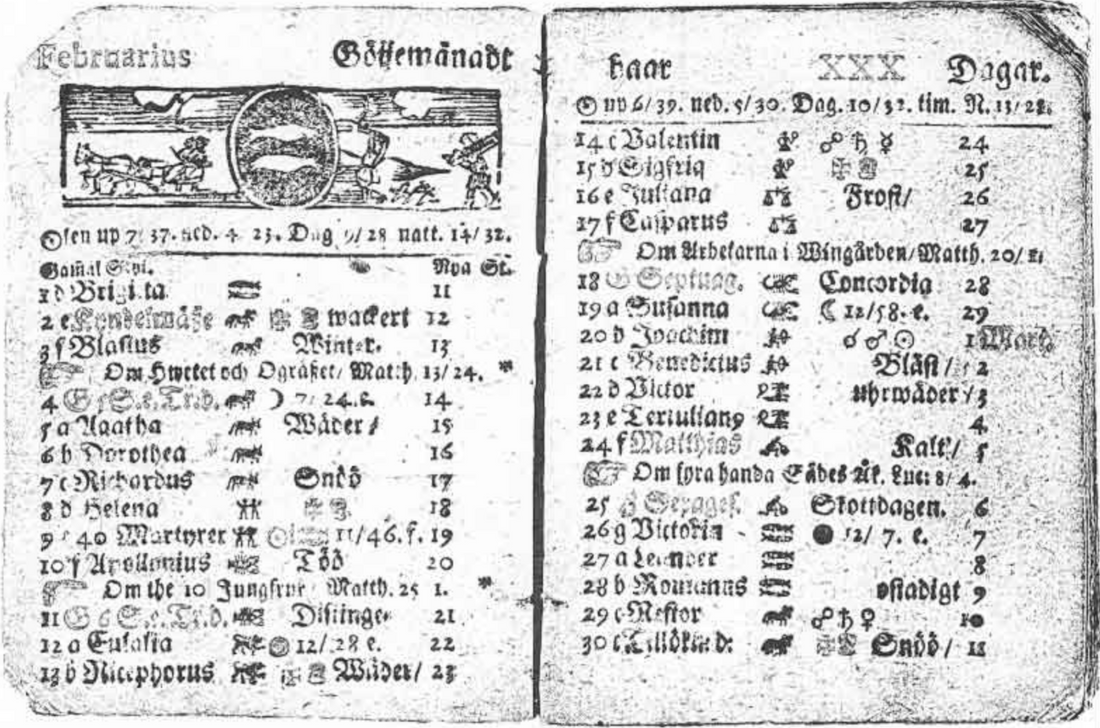 Februarius Göijemånadt
Solen up 7/ 37. ned. 4. 23. Dag 9/28 natt. 14/32.
Gamal Styl. Nya St.
1 d Brigitta 11
2 e Kyndelmäße wackert 12
3 f Blasius Winter. 13
Om Hwetet och Ogräßet/ Matth. 13/24.
4 G 5 S. e. Tr. d. 7/ 24. 14
5 a Agatha Wäder/ 15
6 b Dorothea 16
7 c Richardus Snöö 17
8 d Helena 18
9 e 40 Martyrer 11/46. f. 19
10 f Apollonius Töö 20
Om the 10 Jungfrur Matth. 25 1.
11 G 6 S. e. Tr. d. Distinge 21
12 a Eulalia 12/28 e. 22
13 b Nicephorus Wäder/ 23
haar XXX Dagar.
☉ up 6/39. ned. 5/30. Dag. 10/32. tim. N. 13/28.
14 c Valentin ☍ ♄ ☿ 24
15 d Sigfrid 25
16 e Juliana Frost/ 26
17 f Casparus 27
Om Arbetarna i Wingården/ Matth. 20/ 1.
18 G Septuag. Concordia 28
19 a Susanna ☾ 12/58. e. 29
20 b Joachim ☌ ♂ ☉ 1 Mart.
21 c Benedictus Bläst/ 2
22 d Victor uhrwäder/ 3
23 e Tertulian9 4
24 f Matthias Kalt/ 5
Om fyra handa Sädes Åk. Luc: 8/ 4.
25 g Sexages. Skottdagen. 6
26 g Victoria ● 12/ 7. e. 7
27 a Leander 8
28 b Romanus ostadigt 9
29 c Nestor ☍ ♄ ♀ 10
30 c Tillökn.d. Snöö/ 11